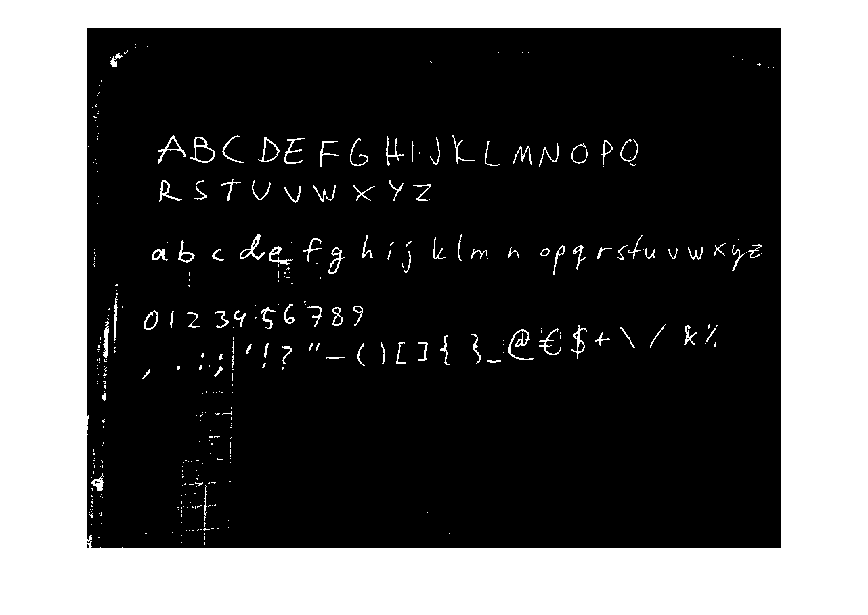 ABCDEFGHIJKLMNOPQ
RSTUVWXYZ
abcdefghijklmnopqrstuvwxyz
0123456789
, . : ; ' ! ? " - ( ) [ ] { } _ @ € $ + \ / & %